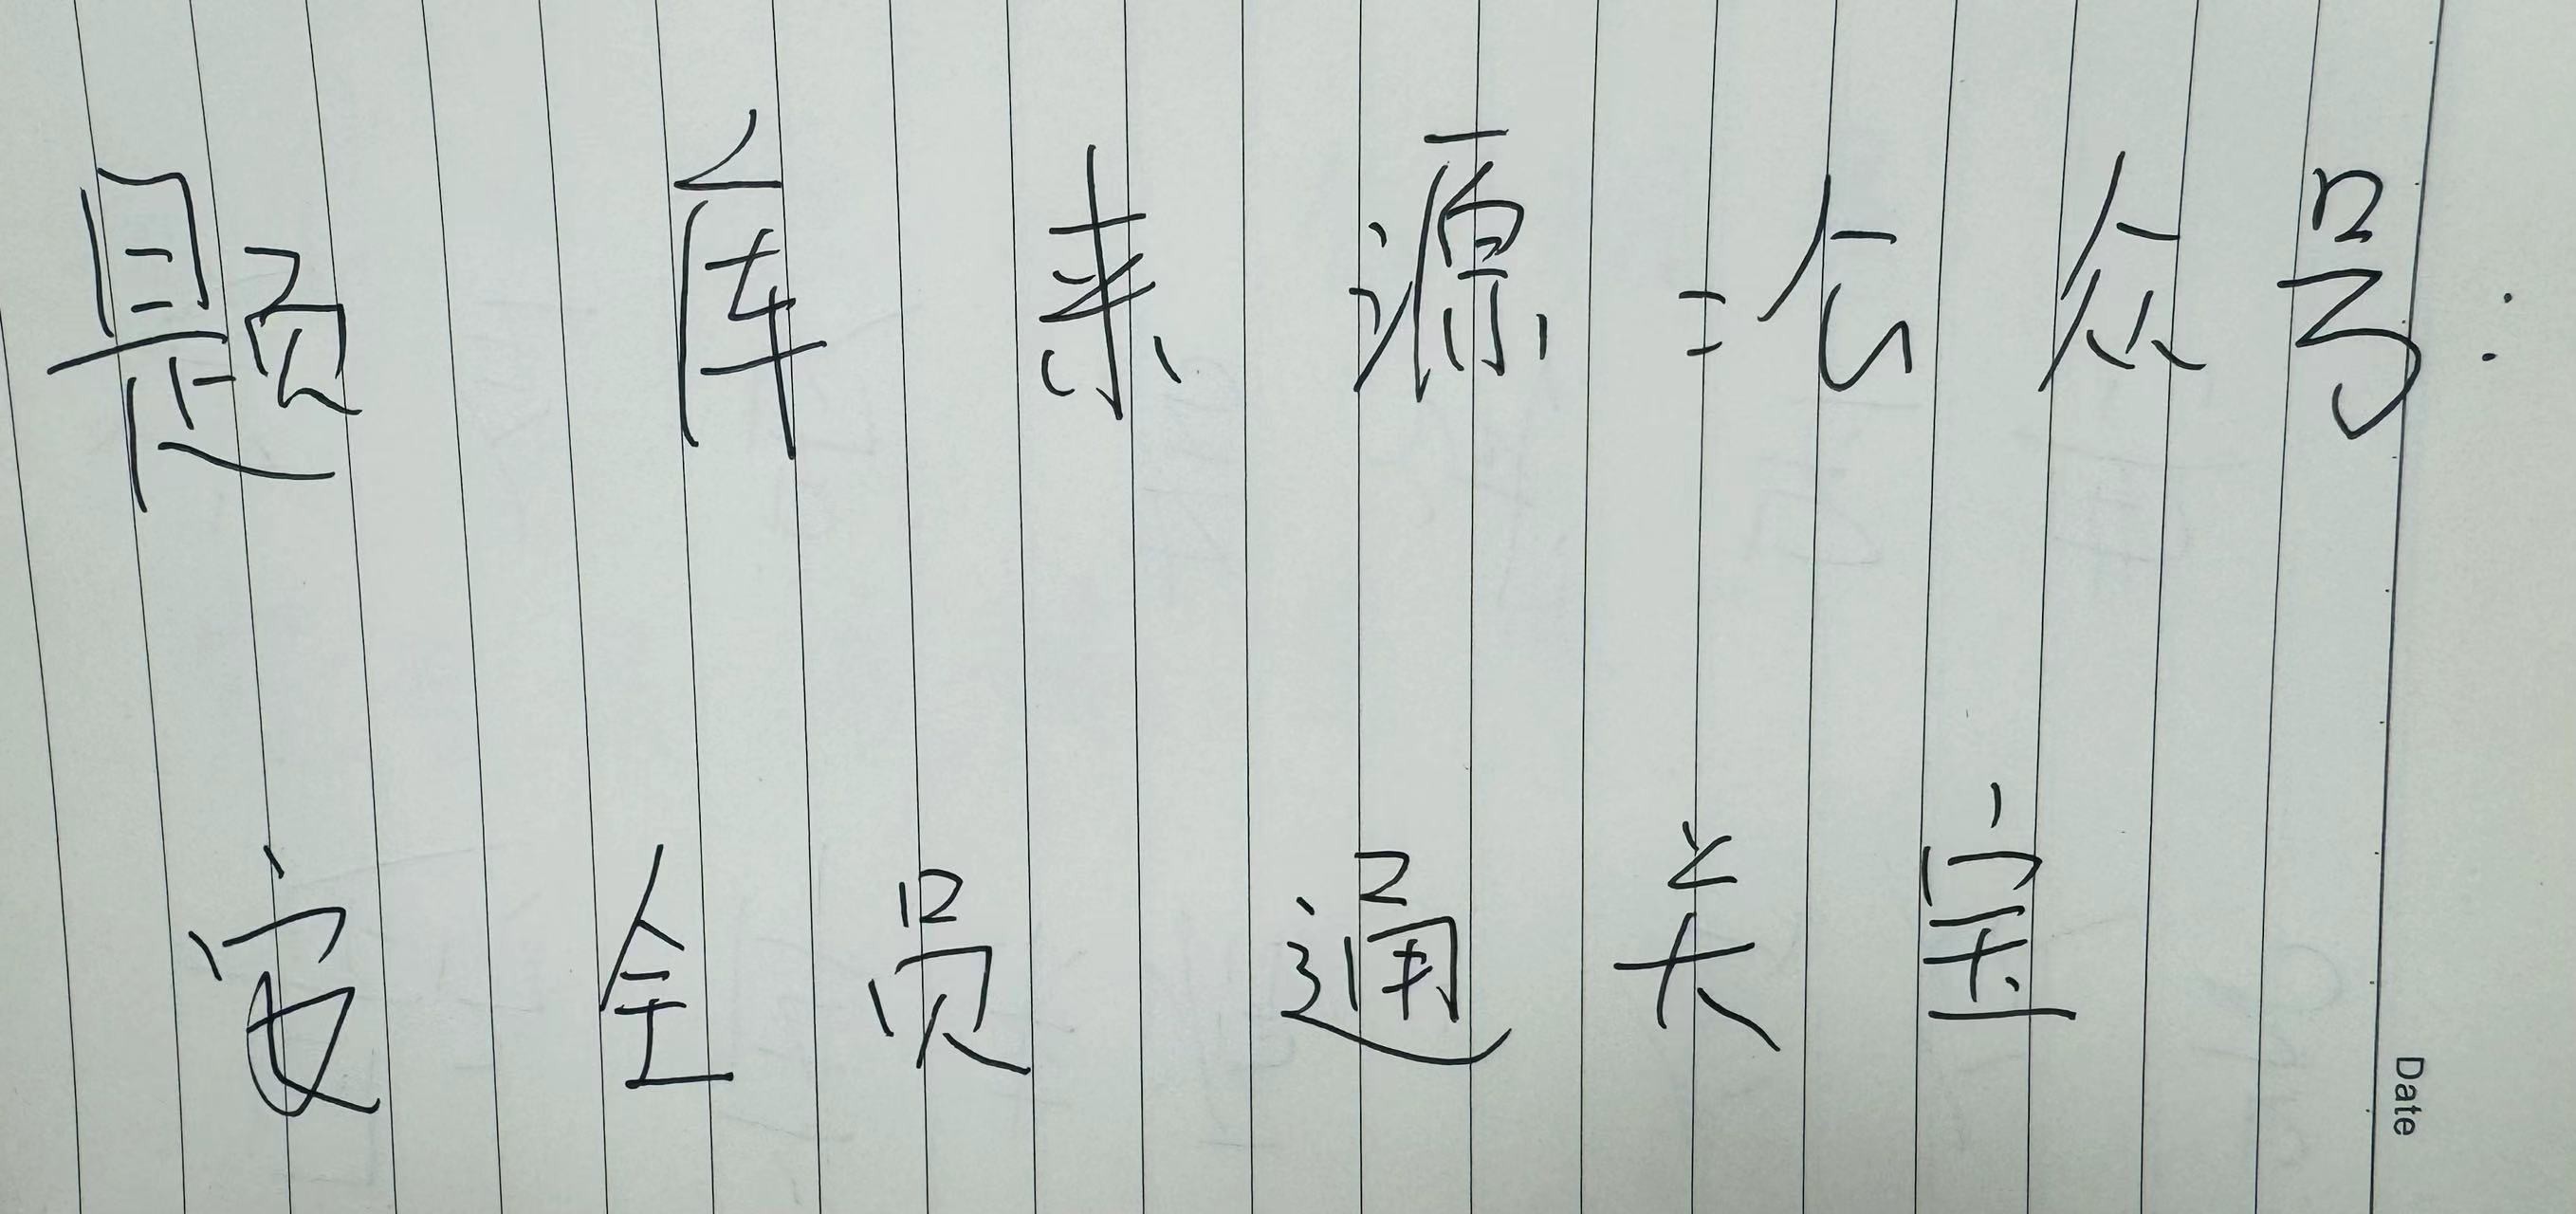 题库来源=公众号:
安全员通关宝
Date